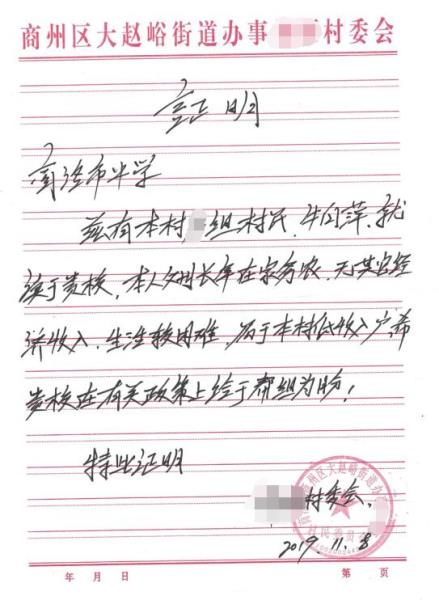 商州区大赵峪街道办事 村委会
证明
商洛市中学
兹有本村 组村民,牛 萍,就
读于贵校,本人父母长年在家务农,无其它经
济收入,生活较困难,属于本村低收入户希
贵校在有关政策上给于帮组为盼!
特此证明
村委会,
商州区大赵峪街道办
村民委员会
2019.11.8
年 月 日 第 页